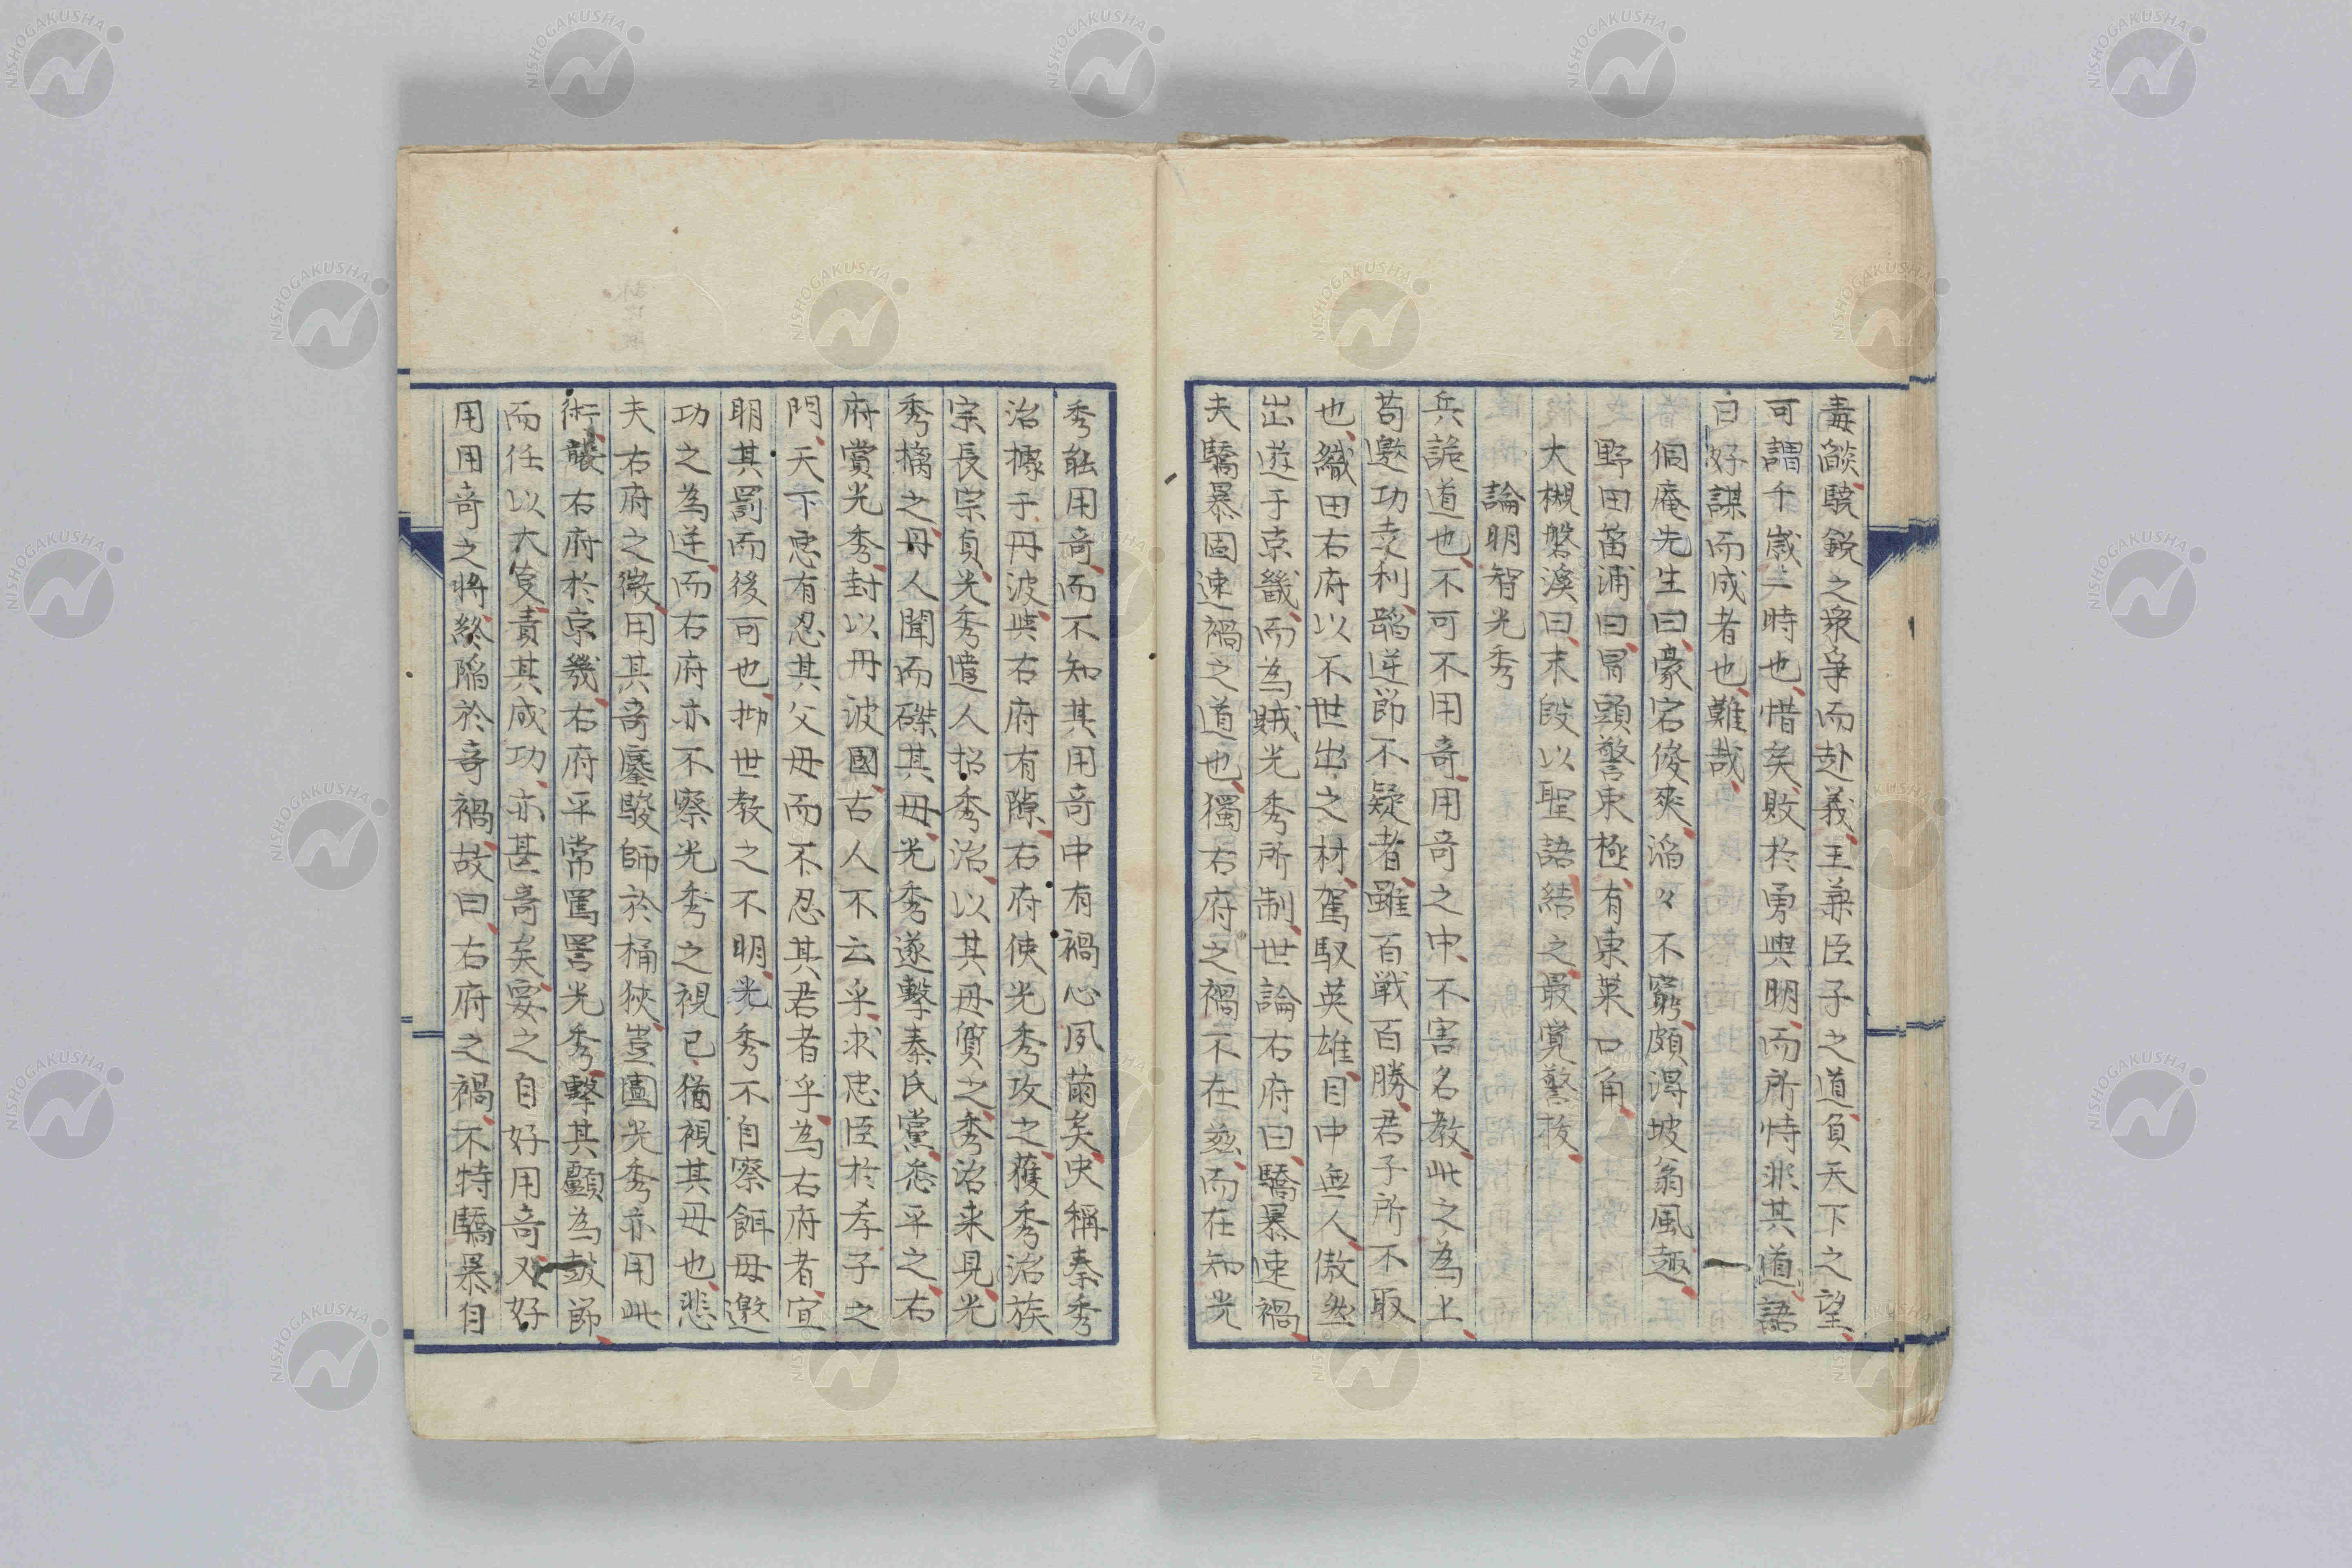 毒燄驍鋭之衆爭而赴義主兼臣子之道負天下之望
可謂千歳一時也惜矣敗於勇與明而所恃非其道語
曰好謀而成者也難哉
侗庵先生曰豪宕俊爽滔々不窮頗得坡翁風趣
野田笛浦曰冐頭警束極有東萊口角
大槻磐溪曰末段以聖語結之最覚警抜
論明智光秀
兵詭道也不可不用奇用奇之中不害名教此之為上
苟邀功幸利蹈逆節不疑者雖百戦百勝君子所不取
也織田右府以不世出之材駕馭英雄目中無人傲然
出遊于京畿而為賊光秀所制世論右府曰驕暴速禍
夫驕暴固速禍之道也獨右府之禍不在茲而在知光
秀能用奇而不知其用奇中有禍心夙萠矣史稱秦秀
治據于丹波与右府有隙右府使光秀攻之獲秀治族
宗長宗貞光秀遣人招秀治以其母質之秀治来見光
秀擒之丹人聞而磔其母光秀遂撃秦氏黨悉平之右
府賞光秀封以丹波國古人不云乎求忠臣於孝子之
門天下悪有忍其父母而不忍其君者乎為右府者宜
明其罰而後可也抑世教之不明光秀不自察餌母邀
功之為逆而右府亦不察光秀之視已猶視其母也悲
夫右府之微用其奇鏖駿師於桶狹豈圖光秀亦用此
術襲右府於京畿右府平常罵詈光秀撃其顱為鼓節
而任以大責其成功亦甚奇矣要之自好用奇又好
用用奇之将終陥於奇禍故曰右府之禍不特驕暴自
NISHOGAKUSHA